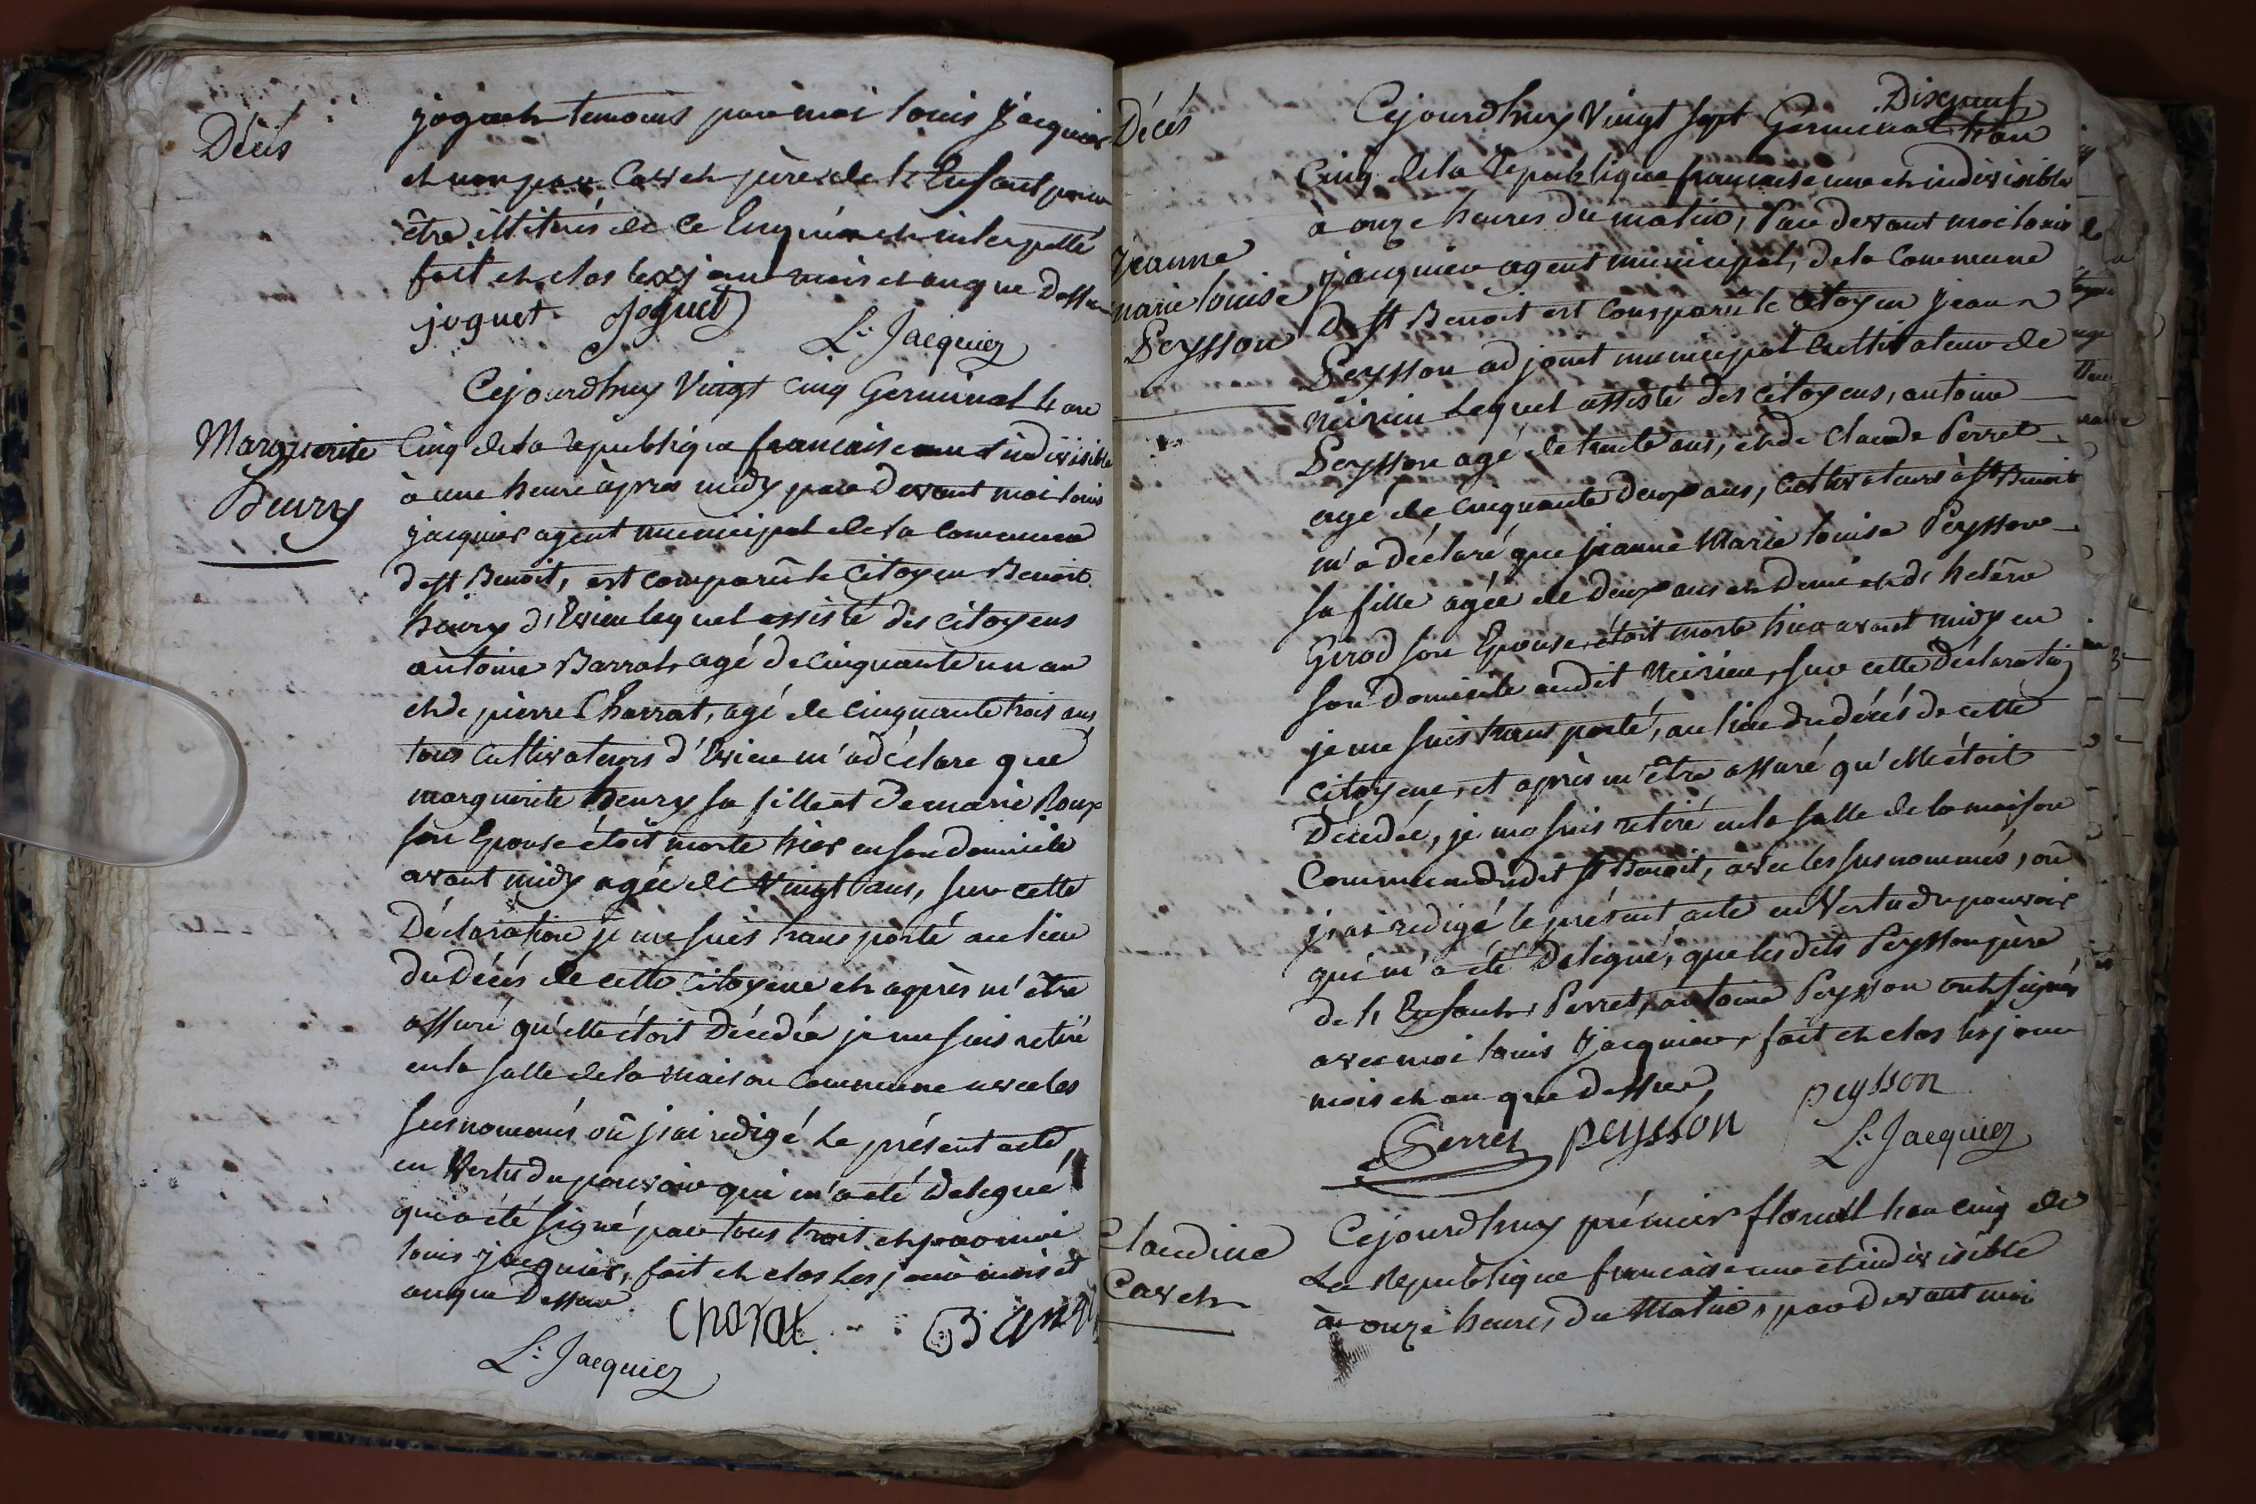 Décès
joguet temoins par moi louis Jacquier
et non par Cavet père de l'Enfant pour
être illitérés de ce Enquis et interpellé
fait et clos les jour mois et an que dessus
joguet Joguet
L: Jacquier
Cejourd'huy Vingt cinq Germinal l'an
Marguerite
henry
Cinq de la republique francaise une et indivisible
à une heure après midy par devant moi louis
jacquier agent municipal de la commune
de st Benoit, est comparu le Citoyen Benoit
henry d'Evieu lequel assisté des citoyens
antoine Barrat agé de cinquante un an
et de pierre Charrat, agé de cinquante trois ans
tous cultivateurs d'Evieu m'a déclaré que
marguerite henry sa fille et de marie Roux
son Epouse étoit morte hier en son domicile
avant midy agée de Vingt ans, sur cette
Déclaration je me suis transporté au lieu
du Décés de cette Citoyene et après m'être
assuré qu'elle étoit Décédée je me suis retiré
en la salle de la maison Commune avec les
susnommés où j'ai redigé le présent acte
en Vertu du pouvoir qui m'a eté Delegué
qui a été signé par tous trois et par moi
louis jacquier, fait et clos les jour mois et
an que Dessus
Charat
L: Jacquier
Décés
Cejourd'huy Vingt sept Germinal l'an
Cinq de la Republique francaise une et indivisible
à onze heures du matin, Par devant moi louis
Jeanne
marie louise
Peysson
jacquier agent municipal, de la Commune
De st Benoit est comparu le citoyen jean
Peysson adjoint municipal Cultivateur de
lequel assisté des citoyens, antoine
Peysson agé de trente ans, et de Claude Perret
agé de cinquante deux ans, cultivateurs à st Benoit
m'a déclaré que jeanne Marie louise Peysson
sa fille agée de deux ans et Demi et d'heléne
Girod son Epouse, étoit morte hier avant midy en
son domicile audit, sur cette Déclaration
je me suis transporté, au lieu du décés de cette
citoyene, et après m'être assuré qu'elle étoit
Décédée, je me suis retiré en la salle de la maison
Commune dudit st Benoit, avec les susnommés, où
j'ai redigé le présent acte en Vertu du pouvoir
qui m'a eté Delegué, que les dits Peysson père
de l'Enfant, Perret, antoine Peysson ont signés
avec moi louis Jacquier, fait et clos les jour
mois et an que dessus,
peysson
Perret peysson
L: Jacquier
Claudine
Cavet
Cejourd'huy prémier floreal l'an cinq de
La Republique francaise une et indivisible
à onze heures du Matin, par devant moi